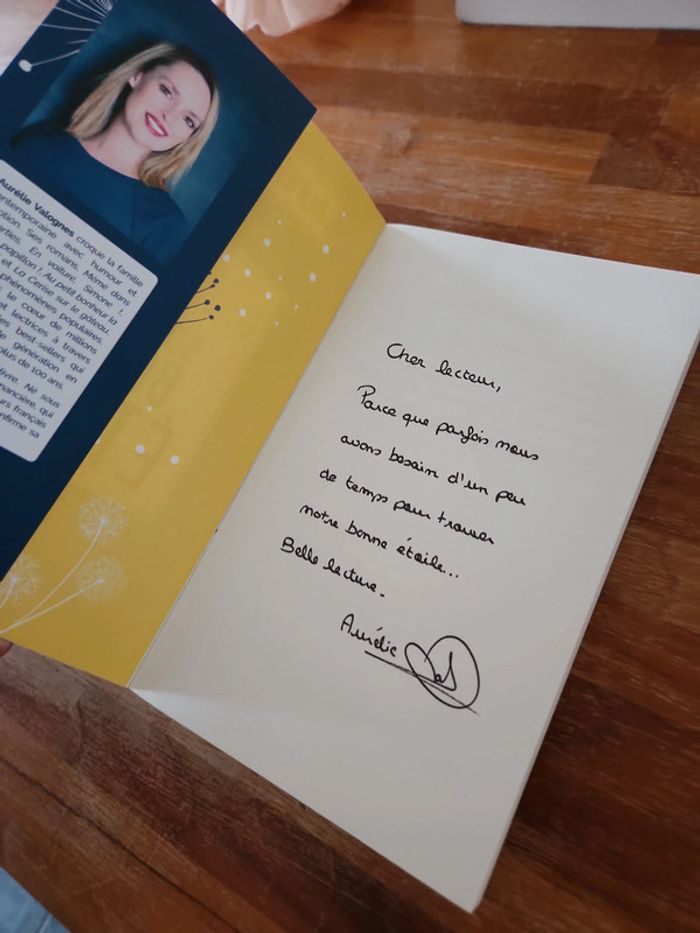 Aurélie Valognes croque la famille
contemporaine avec humour et
Ses romans, Mémé dans
orties, En voiture, Simone !,
papillon !, Au petit bonheur la
et La Cerise sur le gâteau,
phénomènes populaires,
le cœur de millions
et lectrices à travers
best-sellers qui
de génération en
plus de 100 ans.
livre, Né sous
financière, qui
français
confirme sa
Cher lecteur,
Parce que parfois nous
avons besoin d'un peu
de temps pour trouver
notre bonne étoile...
Belle lecture.
Aurélie Val